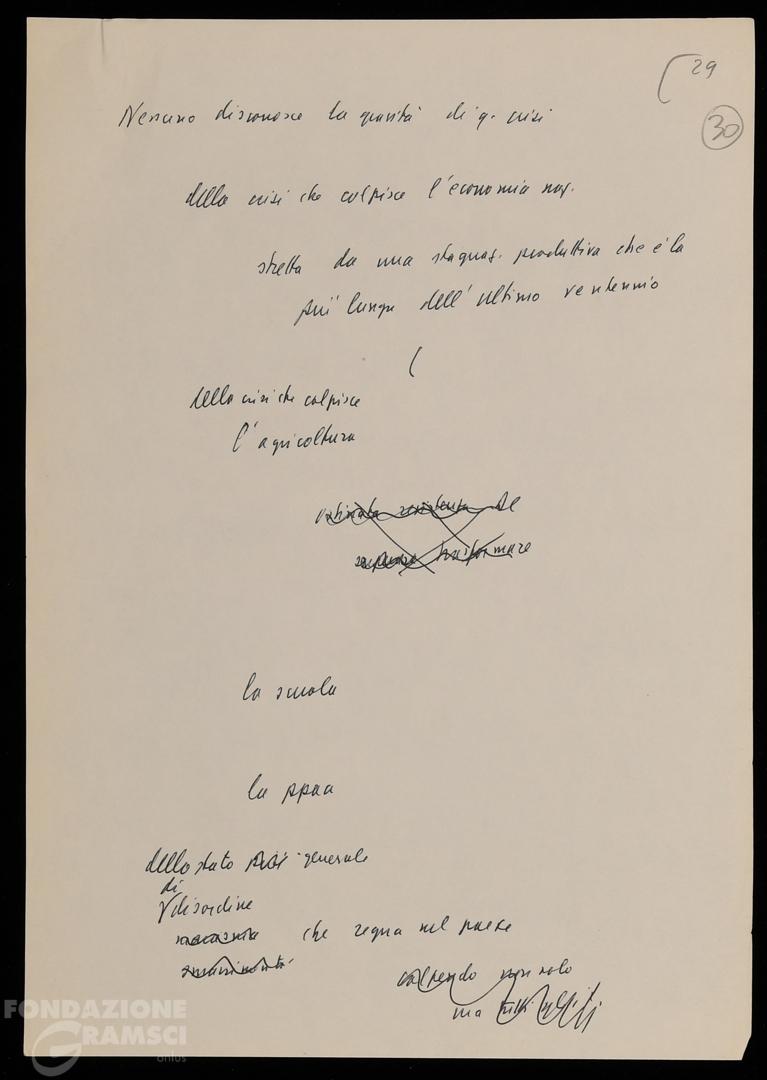 29
30
Nessuno disconosce la gravità di q. crisi
della crisi che colpisce l'economia naz.
stretta da una stagnaz. produttiva che è la
più lunga dell'ultimo ventennio
(
della crisi che colpisce
l'agricoltura
ostinata resistenza al
trasformare
la scuola
la ppaa
dello stato più generale
di
disordine
che regna nel paese
colpendo non solo
ma tutti gli
FONDAZIONE
GRAMSCI
onlus